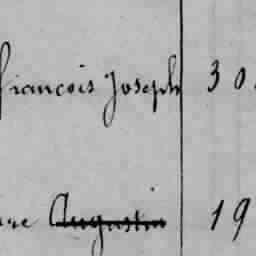 françois Joseph 30
re Augustin 19